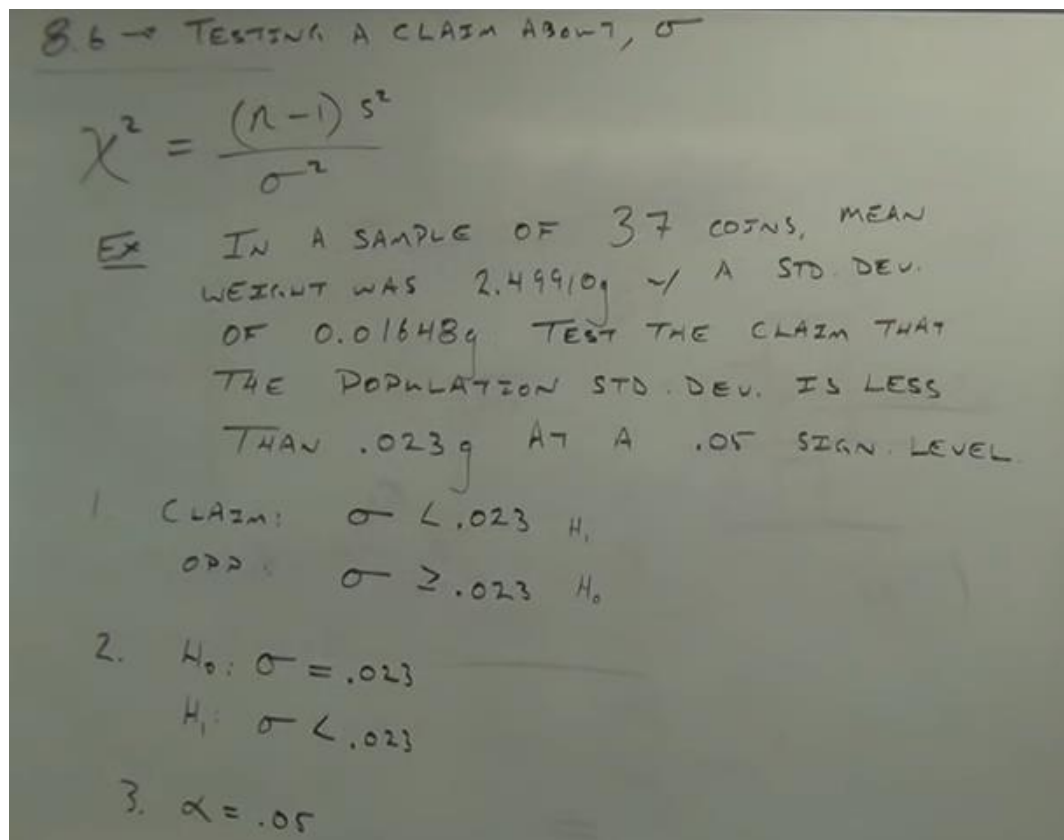 8.6 → TESTING A CLAIM ABOUT, σ
χ² = (n-1) s² / σ²
Ex IN A SAMPLE OF 37 COINS, MEAN
WEIGHT WAS 2.49910g w/ A STD. DEV.
OF 0.01648g TEST THE CLAIM THAT
THE POPULATION STD. DEV. IS LESS
THAN .023g AT A .05 SIGN. LEVEL.
1 CLAIM: σ < .023 H₁
OPP: σ ≥ .023 H₀
2. H₀: σ = .023
H₁: σ < .023
3. α = .05